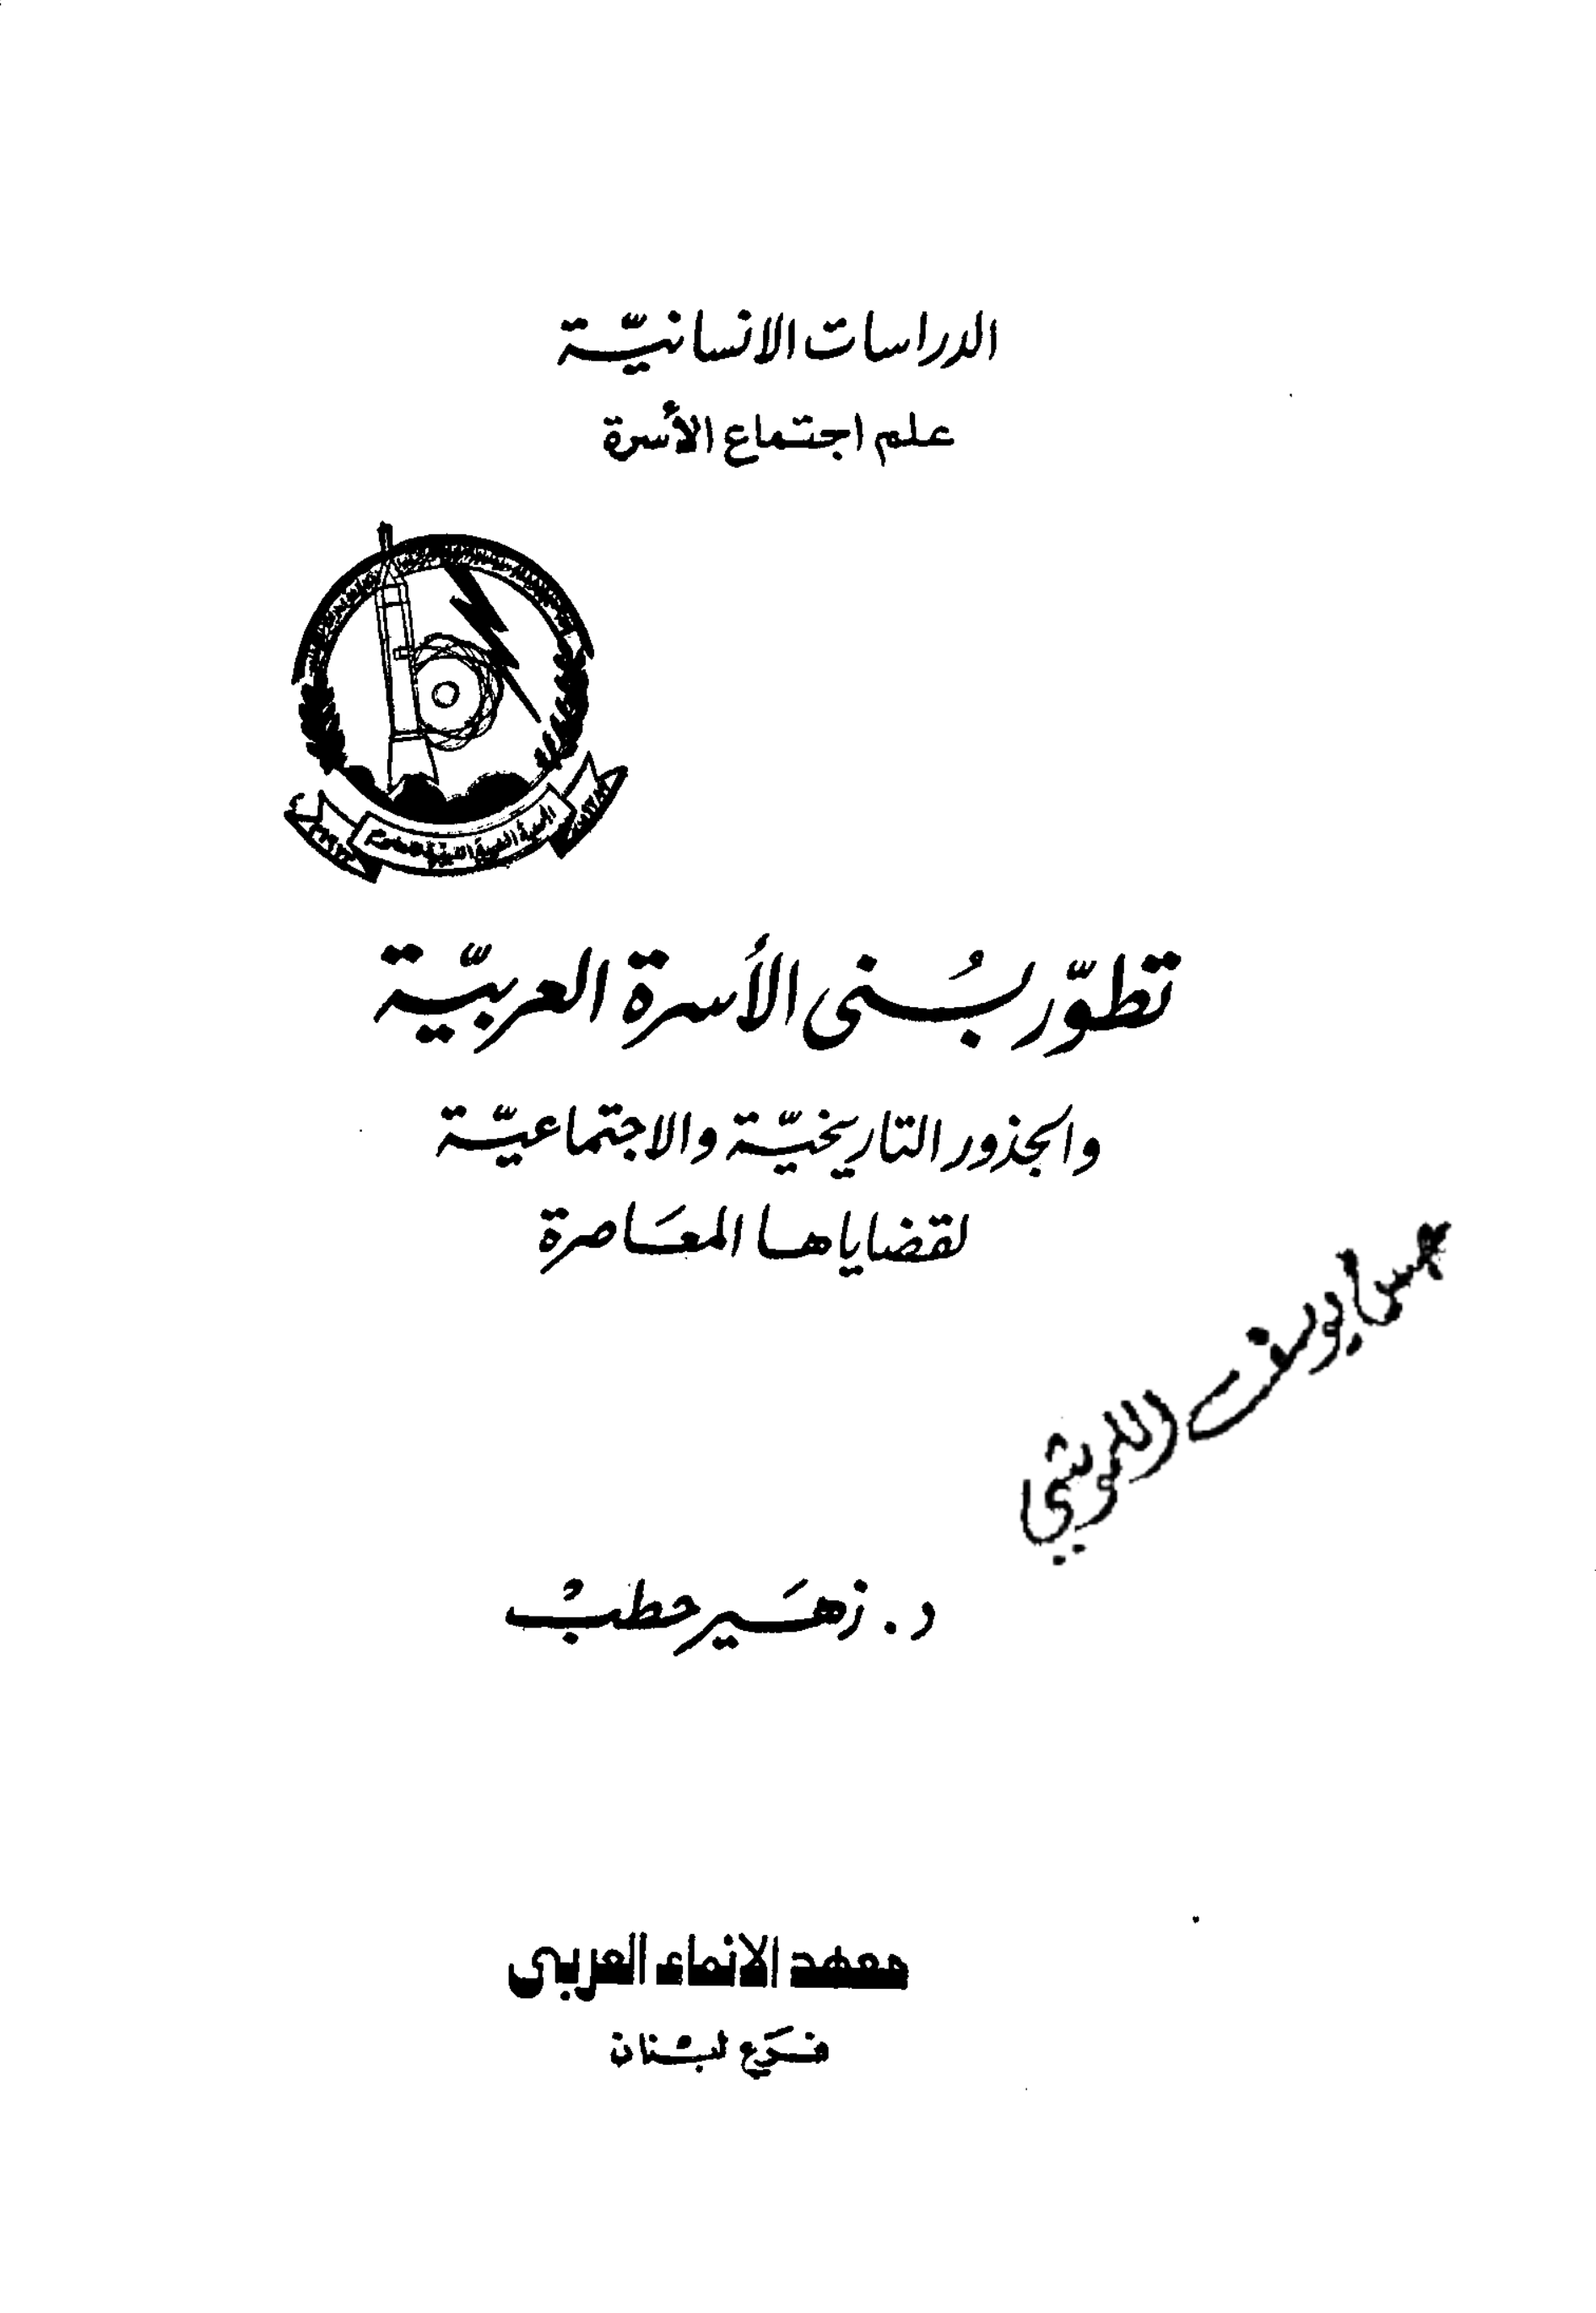 الدراسات الانسانيّة
علم اجتماع الأسرة
تطوّر بُنى الأسرة العربيّة
والجذور التاريخيّة والاجتماعيّة
لقضاياها المعَاصرة
يوسف
د. زهَير حطبْ
معهد الانماء العربي
فرَع لبْنان